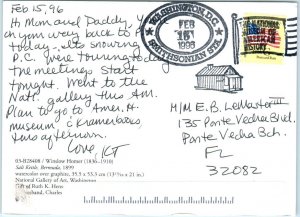 Feb 15, 96
Hi Mom and Daddy, I'm
on your way back to FL
today - its snowing
D.C. were touring today
The meetings start
tonight. Went to the
Natl. gallery this AM.
Plan to go to Amer. H.
museum & Kramerbooks
this afternoon.
Love, KT
WASHINGTON, D.C.
FEB
15
1996
SMITHSONIAN STA.
M/M E.B. LeMaster III
135 Ponte Vedra Blvd.
Ponte Vedra Bch.
FL
32082
03-B28408 / Winslow Homer (1836-1910)
Salt Kettle, Bermuda, 1899
watercolor over graphite, 35.5 x 53.3 cm (13 15/16 x 21 in.)
National Gallery of Art, Washington
Gift of Ruth K. Henschel
Charles